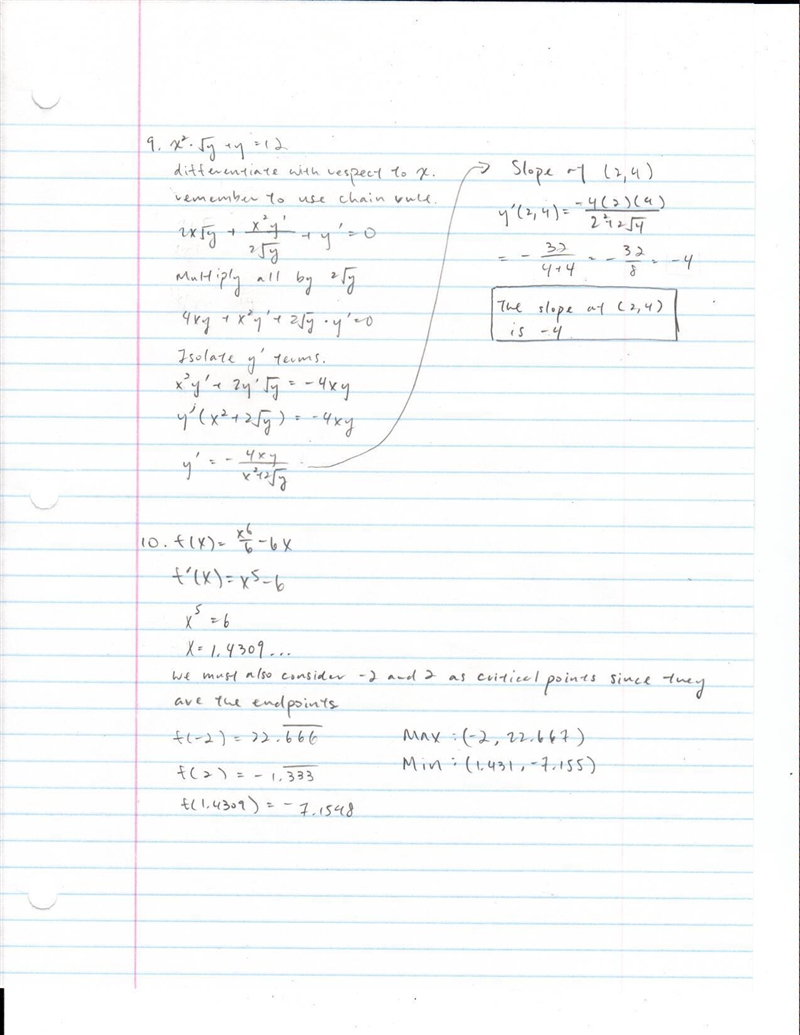 9. x²·√y + y = 12
differentiate with respect to x.
remember to use chain rule.
2x√y + x²y'/2√y + y' = 0
Multiply all by 2√y
4xy + x²y' + 2√y · y' = 0
Isolate y' terms.
x²y' + 2y'√y = -4xy
y'(x² + 2√y) = -4xy
y' = - 4xy/x²+2√y
Slope at (2,4)
y'(2,4) = -4(2)(4)/2²+2√4
= - 32/4+4 = - 32/8 = -4
The slope at (2,4)
is -4
10. f(x) = x⁶/6 - 6x
f'(x) = x⁵ - 6
x⁵ = 6
x = 1.4309...
We must also consider -2 and 2 as critical points since they
are the endpoints
f(-2) = 22.6̅6̅6̅
f(2) = -1.3̅3̅3̅
f(1.4309) = -7.1548
Max: (-2, 22.667)
Min: (1.431, -7.155)